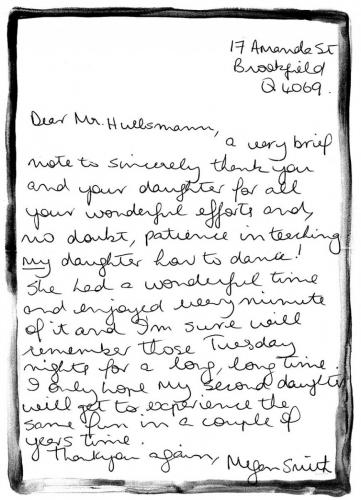 17 Amanda St
Brookfield
Q 4069.
Dear Mr. Huelsmann,
a very brief
note to sincerely thank you
and your daughter for all
your wonderful efforts and,
no doubt, patience in teaching
my daughter how to dance!
She had a wonderful time
and enjoyed every minute
of it and I'm sure will
remember those Tuesday
nights for a long, long time.
I only hope my second daughter
will get to experience the
same fun in a couple of
years time.
Thankyou again, Megan Smith